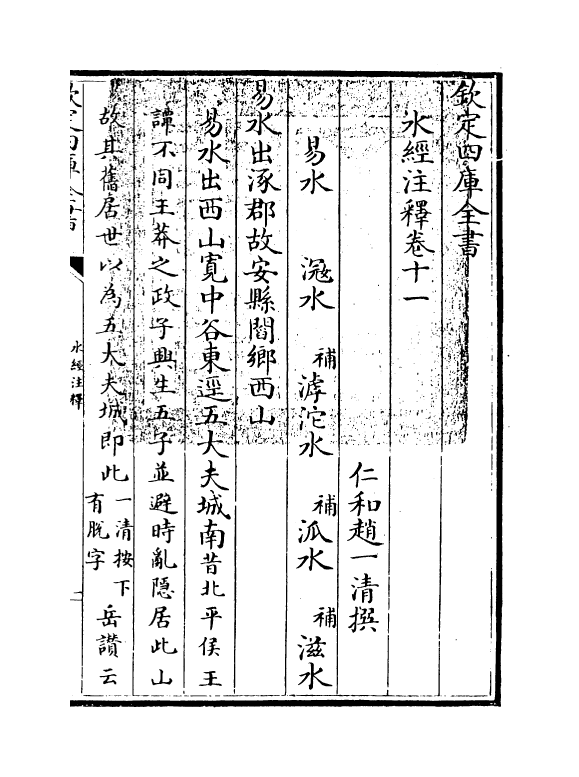 欽定四庫全書
水經注釋卷十一
仁和趙一清撰
易水 滱水 補滹沱水 補泒水 補滋水
易水出涿郡故安縣閻鄉西山
易水出西山寛中谷東逕五大夫城南昔北平侯王
譚不同王莽之政子興生五子並避時亂隱居此山
故其舊居世以為五大夫城即此一清按下有脫字岳讃云
欽定四庫全書
水經注釋